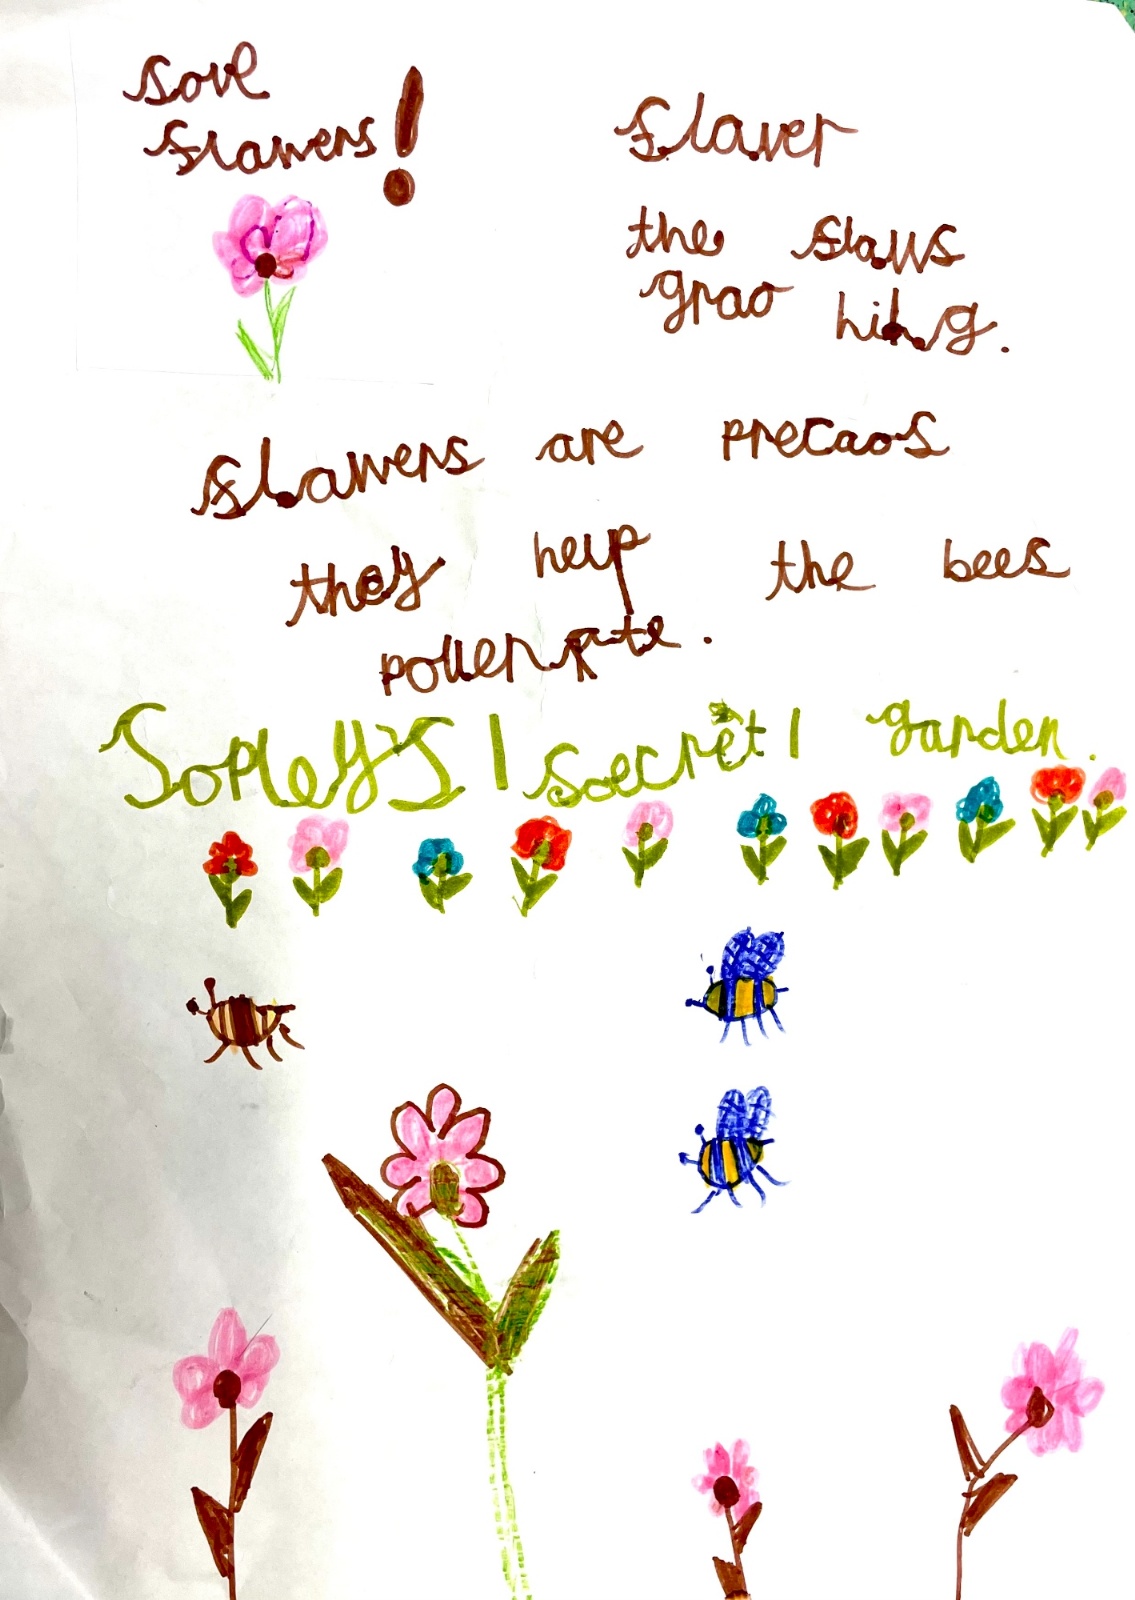 Sove
flawers!
flawer
the flaws
grao hing.
flawers are precaos
they help the bees
pollenate.
Sopley's secret garden.